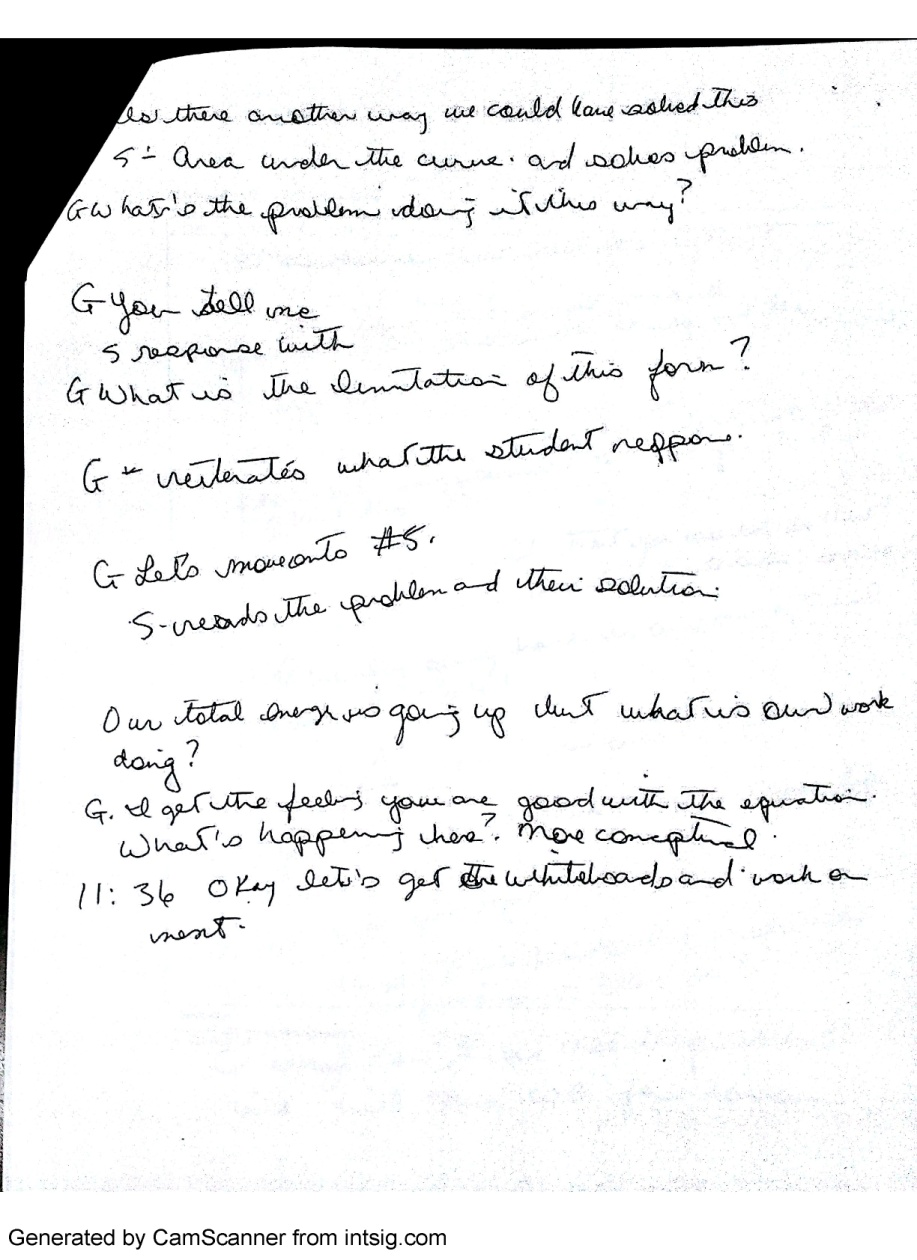 Is there another way we could have solved this
S - Area under the curve. and solves problem.
G What's the problem doing it this way?
G You tell me
S response with
G What is the limitation of this form?
G - reiterates what the student respon.
G Let's move onto #5.
S - reads the problem and their solution.
Our total energy is going up but what is our work
doing?
G. I get the feeling you are good with the equation.
What's happening here? More conceptual.
11:36 Okay let's get the whiteboards and work on
next.
Generated by CamScanner from intsig.com